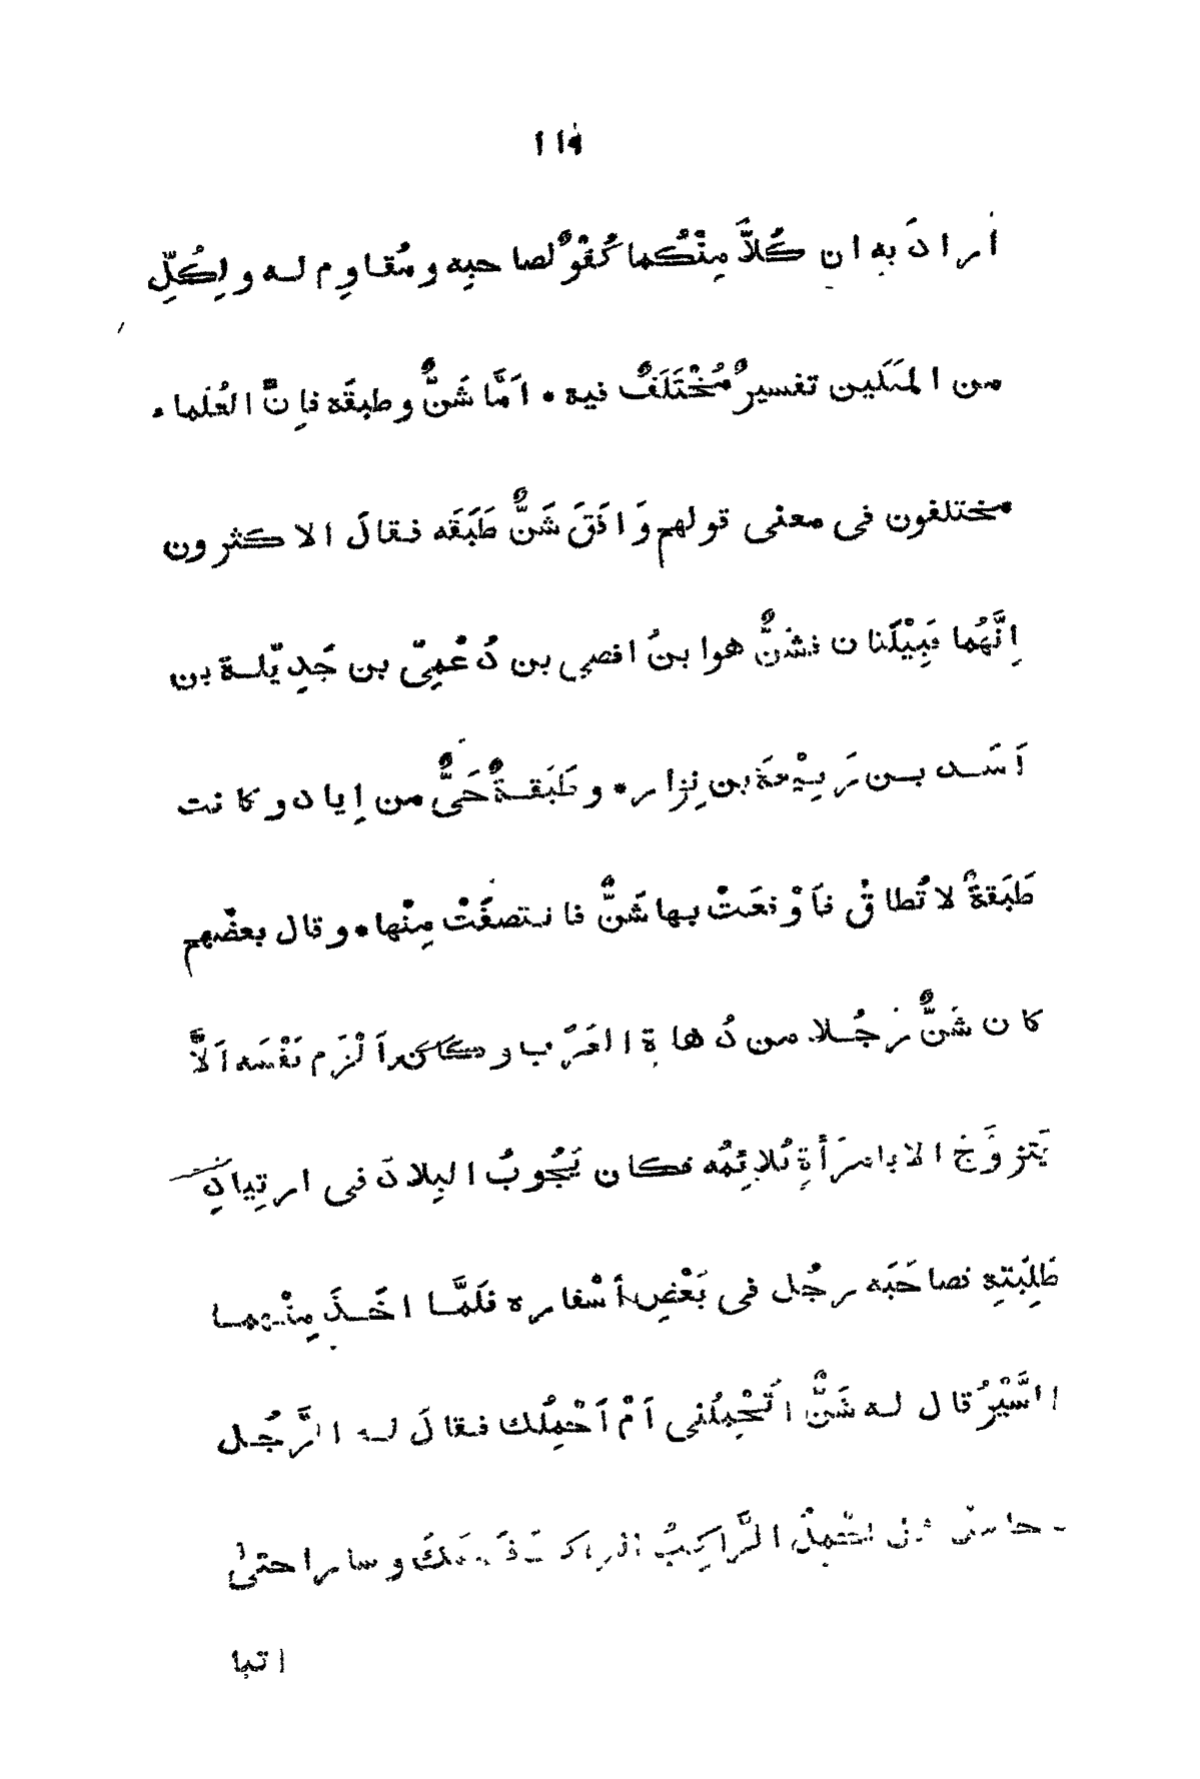 ١١٤
أرادَ به ان كُلاًّ مِنْكُما كُفْوٌ لصاحبِه ومُقاوِم له ولِكُلِّ
من المثَلَين تفسيرٌ مُخْتَلَفٌ فيه * اَمَّا شَنٌّ وطبقَه فاِنَّ العُلَماء
مختلفون فى معنى قولهم وَافَقَ شَنٌّ طَبَقَه فقالَ الاكثرون
اِنَّهُما قَبِيْلَتان فشَنٌّ هوابنُ افصي بن دُعْمِىّ بن جَدِيّلة بن
اَسَد بن رَبِيْعَة بن نِزار * وطَبَقةٌ حَىٌّ من اِياد وكانت
طَبَقةٌ لا تُطاقُ فاَوْقعَتْ بها شَنٌّ فانتصفَتْ مِنْها * وقال بعضُهم
كان شَنٌّ رَجُلا من دُهاةِ العَرَب وكان اَلْزَم نَفْسَه اَلاَّ
يَتزوَّجَ الا بامرَأةٍ تُلائِمُه فكان يَجُوبُ البِلادَ فى ارتِيادِ
طَلِبَتِه فصاحَبَه رجُل فى بَعْضِ أَسْفاره فلَمَّا اخَذَ مِنْهما
السَّيْرُ قال له شَنٌّ اَتَحْمِلُنى اَمْ اَحْمِلُك فقالَ له الرَّجُل
الرَّاكِبُ وسارا حتىٰ
اتيا